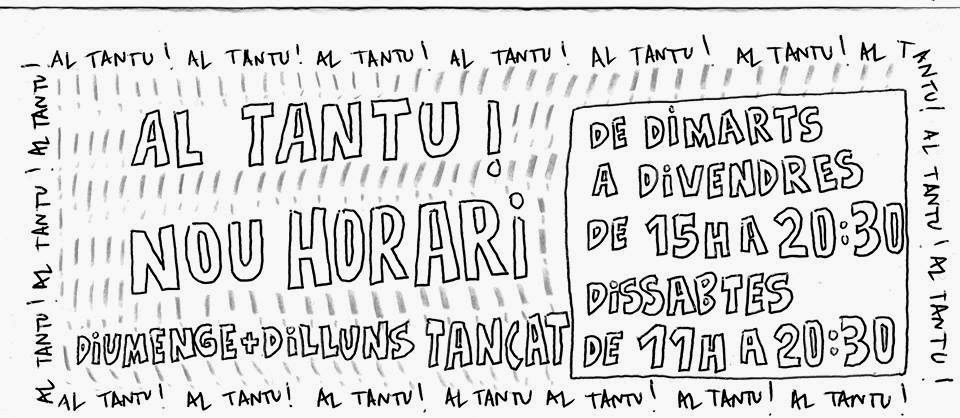 AL TANTU! AL TANTU! AL TANTU! AL TANTU! AL TANTU! AL TANTU! AL TANTU!
AL TANTU! AL TANTU! AL TANTU!
AL TANTU!
NOU HORARi
DiUMENGE+DiLLUNS TANÇAT
DE DiMARTS
A DiVENDRES
DE 15H A 20:30
DiSSABTES
DE 11H A 20:30
AL TANTU! AL TANTU!
AL TANTU! AL TANTU! AL TANTU! AL TANTU AL TANTU! AL TANTU! AL TANTU!